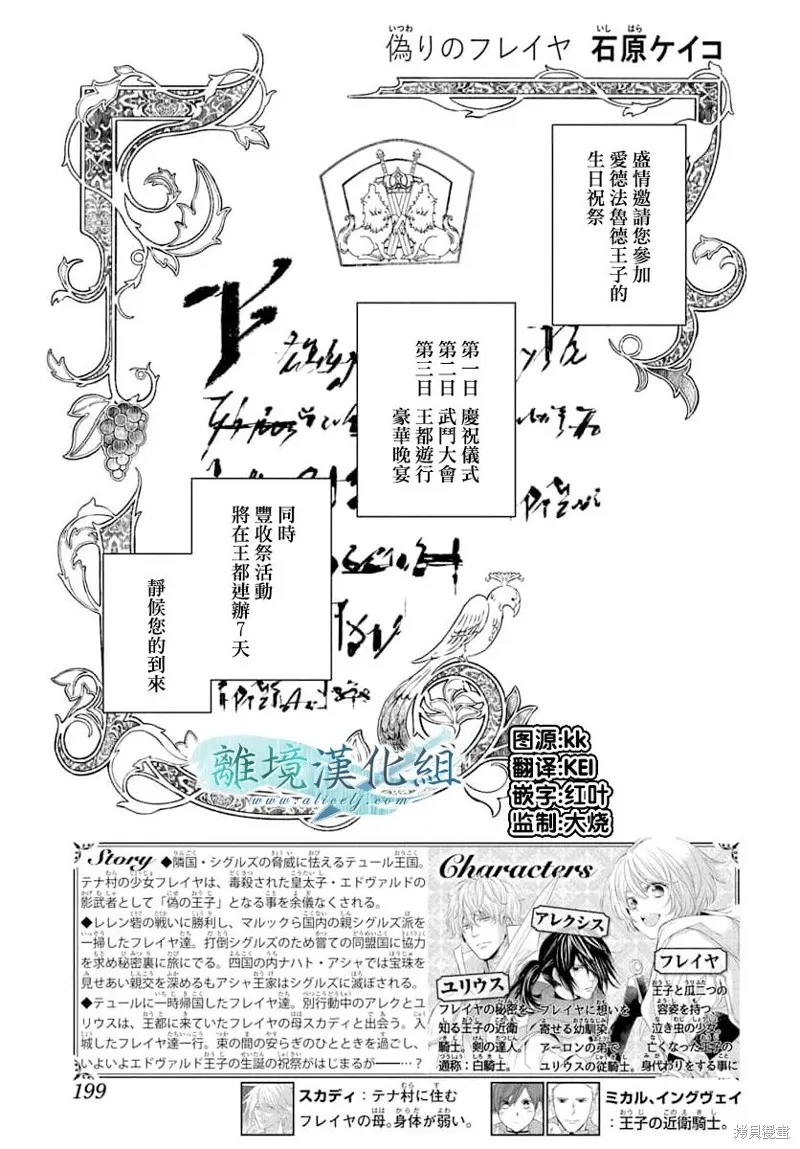 偽りのフレイヤ 石原ケイコ
盛情邀請您參加
愛德法魯德王子的
生日祝祭
第一日 慶祝儀式
第二日 武鬥大會
第三日 王都遊行
豪華晚宴
同時
豐收祭活動
將在王都連辦7天
靜候您的到來
離境漢化組
www.alicelj.com
图源:kk
翻译:KEI
嵌字:红叶
监制:大烧
Story ◆隣国・シグルズの脅威に怯えるテュール王国。
テナ村の少女フレイヤは、毒殺された皇太子・エドヴァルドの
影武者として「偽の王子」となる事を余儀なくされる。
◆レレン砦の戦いに勝利し、マルックら国内の親シグルズ派を
一掃したフレイヤ達。打倒シグルズのため嘗ての同盟国に協力
を求め秘密裏に旅にでる。四国の内ナハト・アシャでは宝珠を
見せあい親交を深めるもアシャ王家はシグルズに滅ぼされる。
◆テュールに一時帰国したフレイヤ達。別行動中のアレクとユ
リウスは、王都に来ていたフレイヤの母スカディと出会う。入
城したフレイヤ達一行。束の間の安らぎのひとときを過ごし、
いよいよエドヴァルド王子の生誕の祝祭がはじまるが――？
Characters
フレイヤ
王子と瓜二つの
容姿を持つ、
泣き虫の少女。
亡くなった王子の
身代わりをする事に
アレクシス
フレイヤに想いを
寄せる幼馴染。
アーロンの弟で
ユリウスの従騎士。
ユリウス
フレイヤの秘密を
知る王子の近衛
騎士。剣の達人。
通称：白騎士。
199
スカディ：テナ村に住む
フレイヤの母。身体が弱い。
ミカル、イングヴェイ
：王子の近衛騎士。
拷貝漫畫